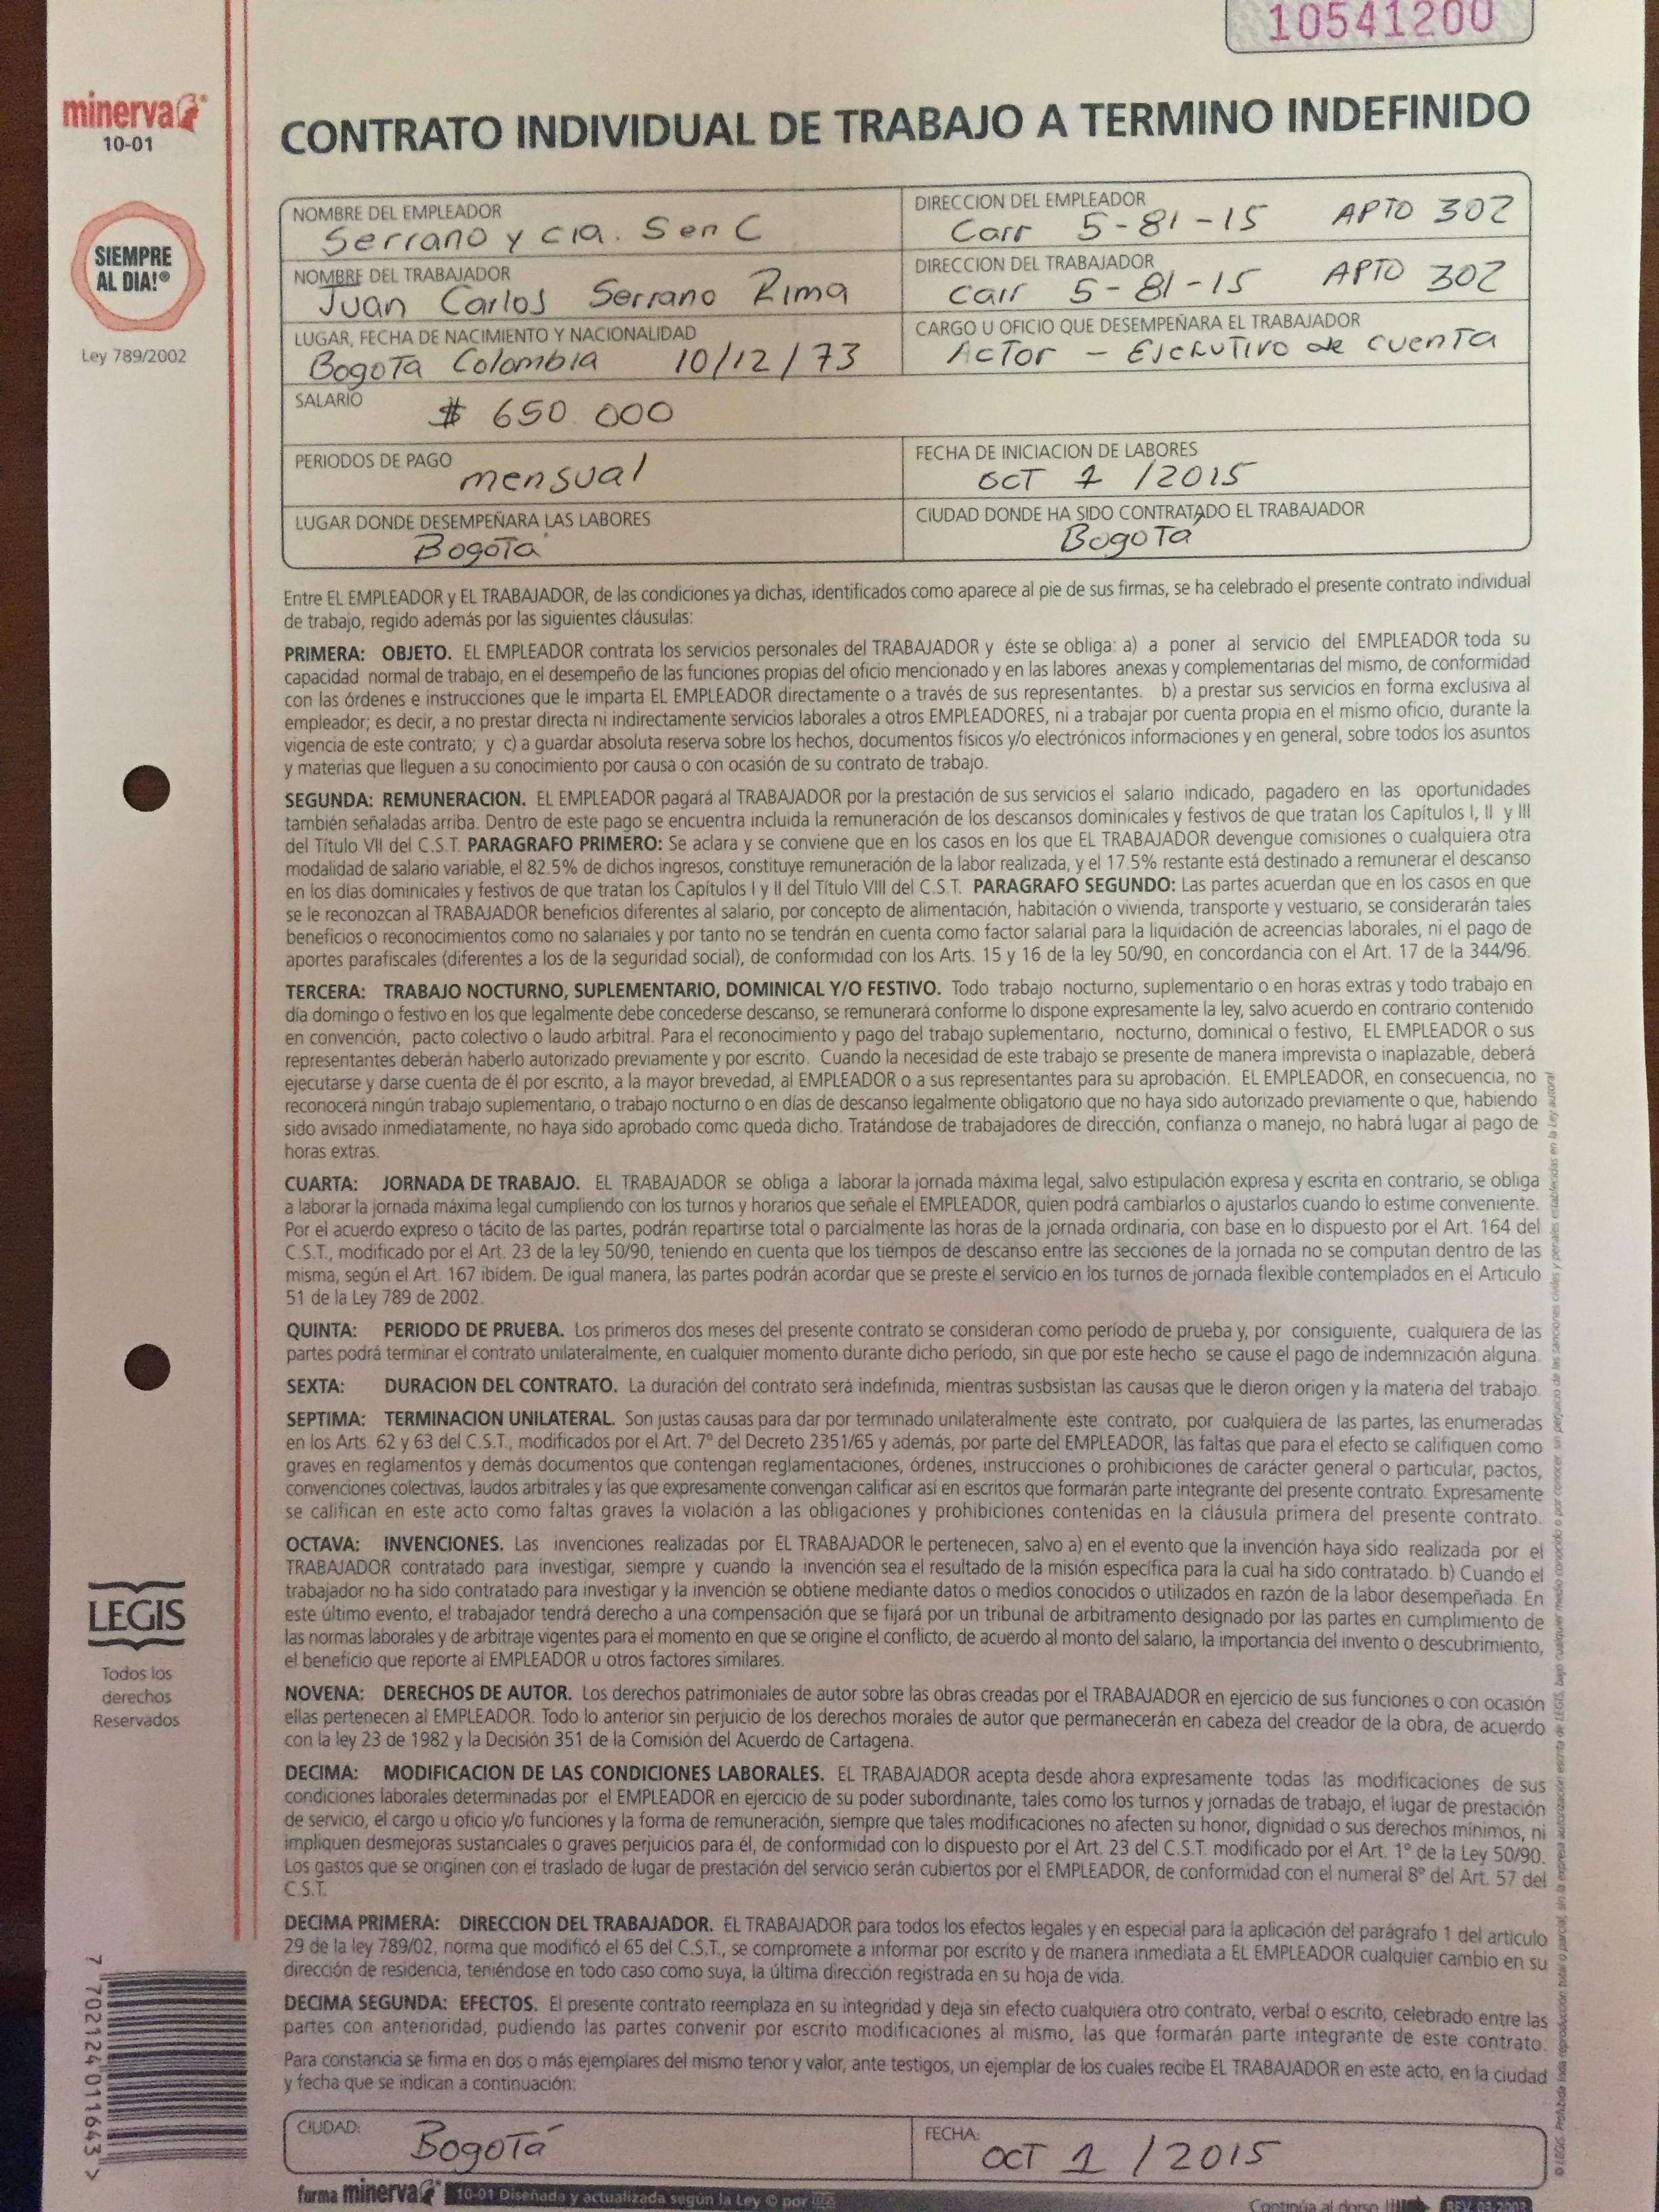 10541200
minerva
10-01
SIEMPRE
AL DIA!®
Ley 789/2002
CONTRATO INDIVIDUAL DE TRABAJO A TERMINO INDEFINIDO
NOMBRE DEL EMPLEADOR
Serrano y cia. S en C
DIRECCION DEL EMPLEADOR
Carr 5-81-15 APTO 302
NOMBRE DEL TRABAJADOR
Juan Carlos Serrano Rima
DIRECCION DEL TRABAJADOR
Carr 5-81-15 APTO 302
LUGAR, FECHA DE NACIMIENTO Y NACIONALIDAD
Bogota Colombia 10/12/73
CARGO U OFICIO QUE DESEMPEÑARA EL TRABAJADOR
Actor - Ejecutivo de cuenta
SALARIO
$ 650.000
PERIODOS DE PAGO
mensual
FECHA DE INICIACION DE LABORES
OCT 1 /2015
LUGAR DONDE DESEMPEÑARA LAS LABORES
Bogotá
CIUDAD DONDE HA SIDO CONTRATADO EL TRABAJADOR
Bogotá
Entre EL EMPLEADOR y EL TRABAJADOR, de las condiciones ya dichas, identificados como aparece al pie de sus firmas, se ha celebrado el presente contrato individual
de trabajo, regido además por las siguientes cláusulas:
PRIMERA: OBJETO. EL EMPLEADOR contrata los servicios personales del TRABAJADOR y éste se obliga: a) a poner al servicio del EMPLEADOR toda su
capacidad normal de trabajo, en el desempeño de las funciones propias del oficio mencionado y en las labores anexas y complementarias del mismo, de conformidad
con las órdenes e instrucciones que le imparta EL EMPLEADOR directamente o a través de sus representantes. b) a prestar sus servicios en forma exclusiva al
empleador; es decir, a no prestar directa ni indirectamente servicios laborales a otros EMPLEADORES, ni a trabajar por cuenta propia en el mismo oficio, durante la
vigencia de este contrato; y c) a guardar absoluta reserva sobre los hechos, documentos físicos y/o electrónicos informaciones y en general, sobre todos los asuntos
y materias que lleguen a su conocimiento por causa o con ocasión de su contrato de trabajo.
SEGUNDA: REMUNERACION. EL EMPLEADOR pagará al TRABAJADOR por la prestación de sus servicios el salario indicado, pagadero en las oportunidades
también señaladas arriba. Dentro de este pago se encuentra incluida la remuneración de los descansos dominicales y festivos de que tratan los Capítulos I, II y III
del Título VII del C.S.T. PARAGRAFO PRIMERO: Se aclara y se conviene que en los casos en los que EL TRABAJADOR devengue comisiones o cualquiera otra
modalidad de salario variable, el 82.5% de dichos ingresos, constituye remuneración de la labor realizada, y el 17.5% restante está destinado a remunerar el descanso
en los días dominicales y festivos de que tratan los Capítulos I y II del Título VIII del C.S.T. PARAGRAFO SEGUNDO: Las partes acuerdan que en los casos en que
se le reconozcan al TRABAJADOR beneficios diferentes al salario, por concepto de alimentación, habitación o vivienda, transporte y vestuario, se considerarán tales
beneficios o reconocimientos como no salariales y por tanto no se tendrán en cuenta como factor salarial para la liquidación de acreencias laborales, ni el pago de
aportes parafiscales (diferentes a los de la seguridad social), de conformidad con los Arts. 15 y 16 de la ley 50/90, en concordancia con el Art. 17 de la 344/96.
TERCERA: TRABAJO NOCTURNO, SUPLEMENTARIO, DOMINICAL Y/O FESTIVO. Todo trabajo nocturno, suplementario o en horas extras y todo trabajo en
día domingo o festivo en los que legalmente debe concederse descanso, se remunerará conforme lo dispone expresamente la ley, salvo acuerdo en contrario contenido
en convención, pacto colectivo o laudo arbitral. Para el reconocimiento y pago del trabajo suplementario, nocturno, dominical o festivo, EL EMPLEADOR o sus
representantes deberán haberlo autorizado previamente y por escrito. Cuando la necesidad de este trabajo se presente de manera imprevista o inaplazable, deberá
ejecutarse y darse cuenta de él por escrito, a la mayor brevedad, al EMPLEADOR o a sus representantes para su aprobación. EL EMPLEADOR, en consecuencia, no
reconocerá ningún trabajo suplementario, o trabajo nocturno o en días de descanso legalmente obligatorio que no haya sido autorizado previamente o que, habiendo
sido avisado inmediatamente, no haya sido aprobado como queda dicho. Tratándose de trabajadores de dirección, confianza o manejo, no habrá lugar al pago de
horas extras.
CUARTA: JORNADA DE TRABAJO. EL TRABAJADOR se obliga a laborar la jornada máxima legal, salvo estipulación expresa y escrita en contrario, se obliga
a laborar la jornada máxima legal cumpliendo con los turnos y horarios que señale el EMPLEADOR, quien podrá cambiarlos o ajustarlos cuando lo estime conveniente.
Por el acuerdo expreso o tácito de las partes, podrán repartirse total o parcialmente las horas de la jornada ordinaria, con base en lo dispuesto por el Art. 164 del
C.S.T., modificado por el Art. 23 de la ley 50/90, teniendo en cuenta que los tiempos de descanso entre las secciones de la jornada no se computan dentro de las
misma, según el Art. 167 ibídem. De igual manera, las partes podrán acordar que se preste el servicio en los turnos de jornada flexible contemplados en el Articulo
51 de la Ley 789 de 2002.
QUINTA: PERIODO DE PRUEBA. Los primeros dos meses del presente contrato se consideran como período de prueba y, por consiguiente, cualquiera de las
partes podrá terminar el contrato unilateralmente, en cualquier momento durante dicho período, sin que por este hecho se cause el pago de indemnización alguna.
SEXTA: DURACION DEL CONTRATO. La duración del contrato será indefinida, mientras susbsistan las causas que le dieron origen y la materia del trabajo.
SEPTIMA: TERMINACION UNILATERAL. Son justas causas para dar por terminado unilateralmente este contrato, por cualquiera de las partes, las enumeradas
en los Arts. 62 y 63 del C.S.T., modificados por el Art. 7º del Decreto 2351/65 y además, por parte del EMPLEADOR, las faltas que para el efecto se califiquen como
graves en reglamentos y demás documentos que contengan reglamentaciones, órdenes, instrucciones o prohibiciones de carácter general o particular, pactos,
convenciones colectivas, laudos arbitrales y las que expresamente convengan calificar así en escritos que formarán parte integrante del presente contrato. Expresamente
se califican en este acto como faltas graves la violación a las obligaciones y prohibiciones contenidas en la cláusula primera del presente contrato.
OCTAVA: INVENCIONES. Las invenciones realizadas por EL TRABAJADOR le pertenecen, salvo a) en el evento que la invención haya sido realizada por el
TRABAJADOR contratado para investigar, siempre y cuando la invención sea el resultado de la misión específica para la cual ha sido contratado. b) Cuando el
trabajador no ha sido contratado para investigar y la invención se obtiene mediante datos o medios conocidos o utilizados en razón de la labor desempeñada. En
este último evento, el trabajador tendrá derecho a una compensación que se fijará por un tribunal de arbitramento designado por las partes en cumplimiento de
las normas laborales y de arbitraje vigentes para el momento en que se origine el conflicto, de acuerdo al monto del salario, la importancia del invento o descubrimiento,
el beneficio que reporte al EMPLEADOR u otros factores similares.
LEGIS
Todos los
derechos
Reservados
NOVENA: DERECHOS DE AUTOR. Los derechos patrimoniales de autor sobre las obras creadas por el TRABAJADOR en ejercicio de sus funciones o con ocasión
ellas pertenecen al EMPLEADOR. Todo lo anterior sin perjuicio de los derechos morales de autor que permanecerán en cabeza del creador de la obra, de acuerdo
con la ley 23 de 1982 y la Decisión 351 de la Comisión del Acuerdo de Cartagena.
DECIMA: MODIFICACION DE LAS CONDICIONES LABORALES. EL TRABAJADOR acepta desde ahora expresamente todas las modificaciones de sus
condiciones laborales determinadas por el EMPLEADOR en ejercicio de su poder subordinante, tales como los turnos y jornadas de trabajo, el lugar de prestación
de servicio, el cargo u oficio y/o funciones y la forma de remuneración, siempre que tales modificaciones no afecten su honor, dignidad o sus derechos mínimos, ni
impliquen desmejoras sustanciales o graves perjuicios para él, de conformidad con lo dispuesto por el Art. 23 del C.S.T. modificado por el Art. 1º de la Ley 50/90.
Los gastos que se originen con el traslado de lugar de prestación del servicio serán cubiertos por el EMPLEADOR, de conformidad con el numeral 8º del Art. 57 del
C.S.T.
DECIMA PRIMERA: DIRECCION DEL TRABAJADOR. EL TRABAJADOR para todos los efectos legales y en especial para la aplicación del parágrafo 1 del articulo
29 de la ley 789/02, norma que modificó el 65 del C.S.T., se compromete a informar por escrito y de manera inmediata a EL EMPLEADOR cualquier cambio en su
dirección de residencia, teniéndose en todo caso como suya, la última dirección registrada en su hoja de vida.
DECIMA SEGUNDA: EFECTOS. El presente contrato reemplaza en su integridad y deja sin efecto cualquiera otro contrato, verbal o escrito, celebrado entre las
partes con anterioridad, pudiendo las partes convenir por escrito modificaciones al mismo, las que formarán parte integrante de este contrato.
Para constancia se firma en dos o más ejemplares del mismo tenor y valor, ante testigos, un ejemplar de los cuales recibe EL TRABAJADOR en este acto, en la ciudad
y fecha que se indican a continuación:
CIUDAD:
Bogotá
FECHA:
OCT 1 /2015
7 702124 011643 >
forma minerva 10-01 Diseñada y actualizada según la Ley © por LEGIS
Continúa al dorso
REV. 03-2003
© LEGIS. Prohibida toda reproducción total o parcial, sin la expresa autorización escrita de LEGIS, bajo cualquier medio conocido o por conocer, sin perjuicio de las sanciones civiles y penales establecidas en la Ley autoral